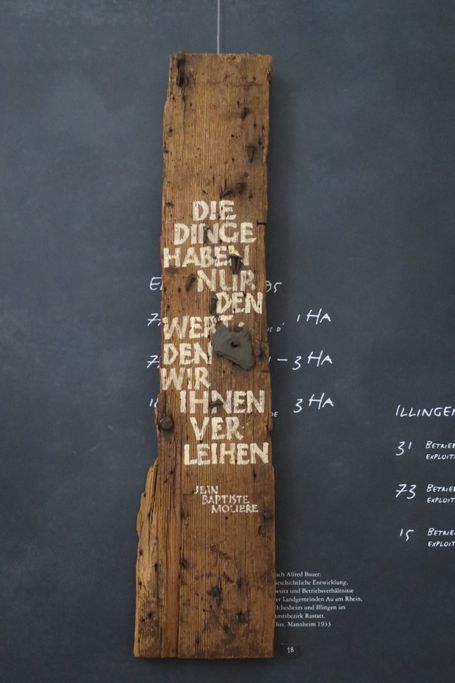 DIE
DINGE
HABEN
NUR
DEN
WERT,
DEN
WIR
IHNEN
VER
LEIHEN
JEIN
BAPTISTE
MOLIERE
1 HA
– 3 HA
3 HA
ILLINGEN
31 BETRIE
EXPLOIT
73 BETRIE
EXPLOIT
15 BETRIE
EXPLOIT
ach Alfred Bauer:
eschichtliche Entwicklung,
esitz und Betriebsverhältnisse
er Landgemeinden Au am Rhein,
lchesheim und Illingen im
mtsbezirk Rastatt.
iss. Mannheim 1933
18